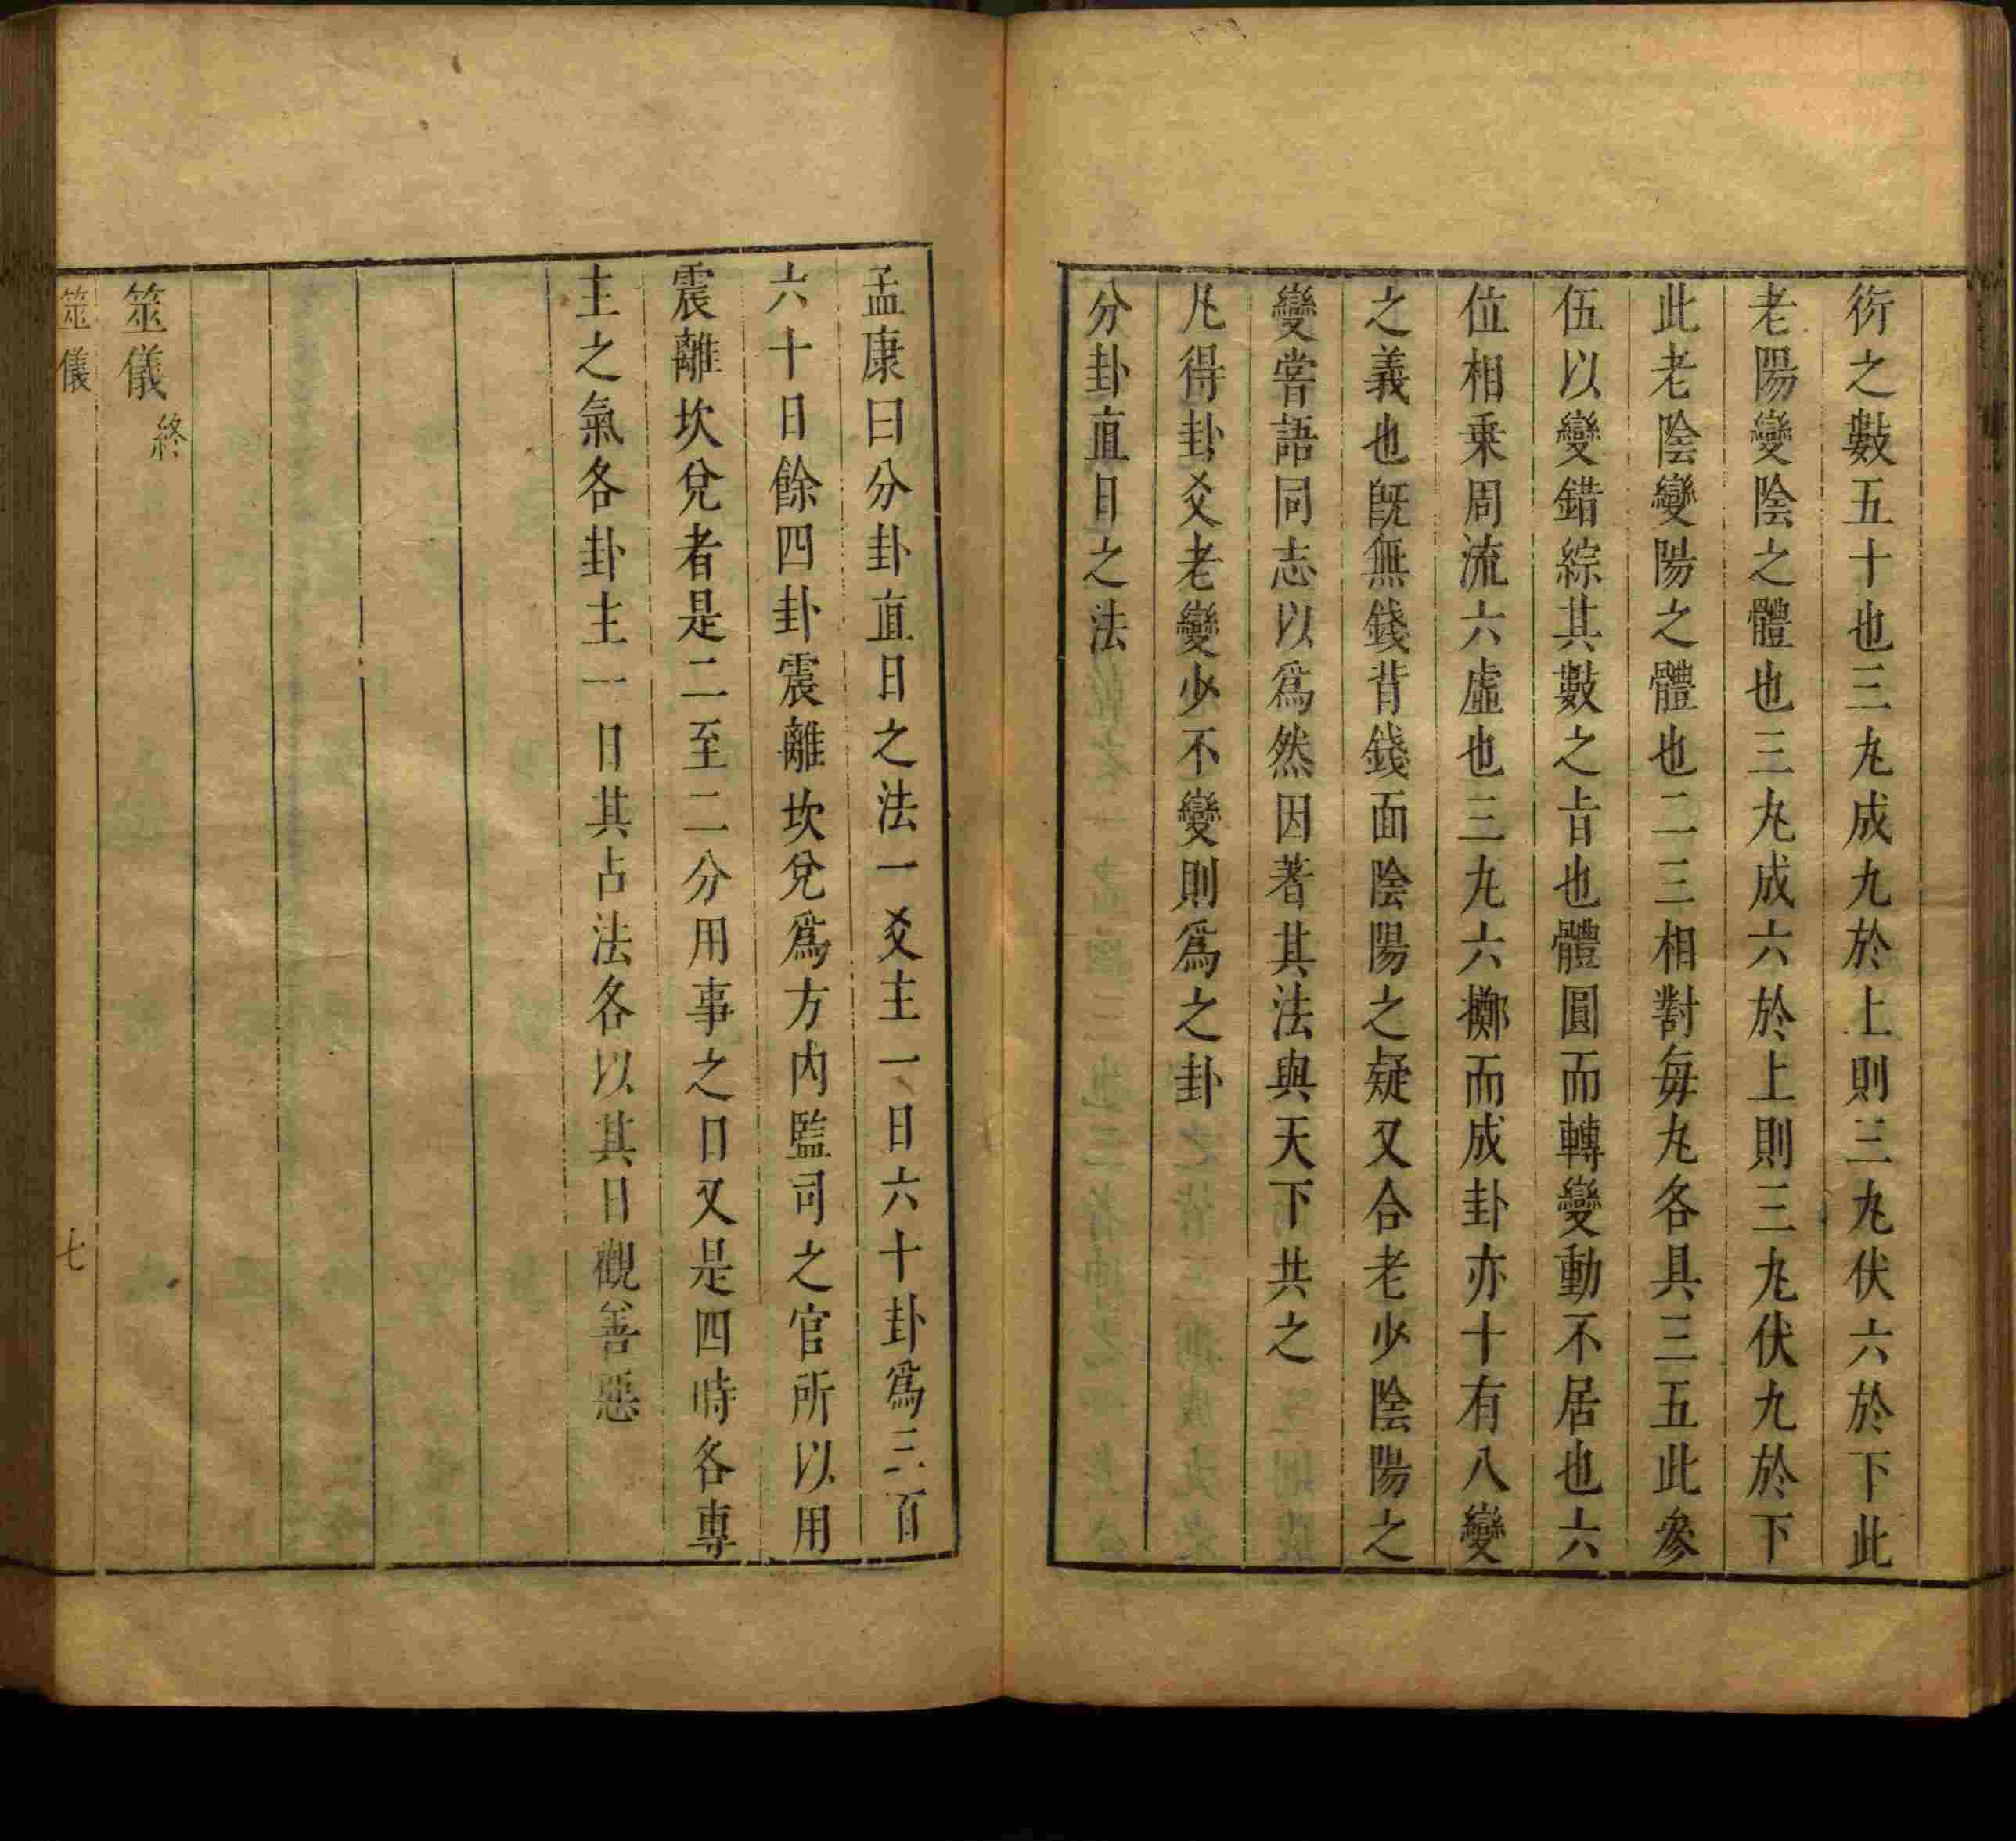 衍之數五十也三丸成九於上則三丸伏六於下此
老陽變陰之體也三丸成六於上則三丸伏九於下
此老陰變陽之體也二三相對每丸各具三五此參
伍以變錯綜其數之㫖也體圓而轉變動不居也六
位相乗周流六虛也三九六擲而成卦亦十有八變
之義也旣無錢背錢面陰陽之疑又合老少陰陽之
變嘗語同志以爲然因著其法與天下共之
凡得卦爻老變少不變則爲之卦
分卦直日之法
孟康曰分卦直日之法一爻主一日六十卦爲三百
六十日餘四卦震離坎兌爲方內監司之官所以用
震離坎兌者是二至二分用事之日又是四時各專
主之氣各卦主一日其占法各以其日觀善惡
筮儀終
筮儀 七